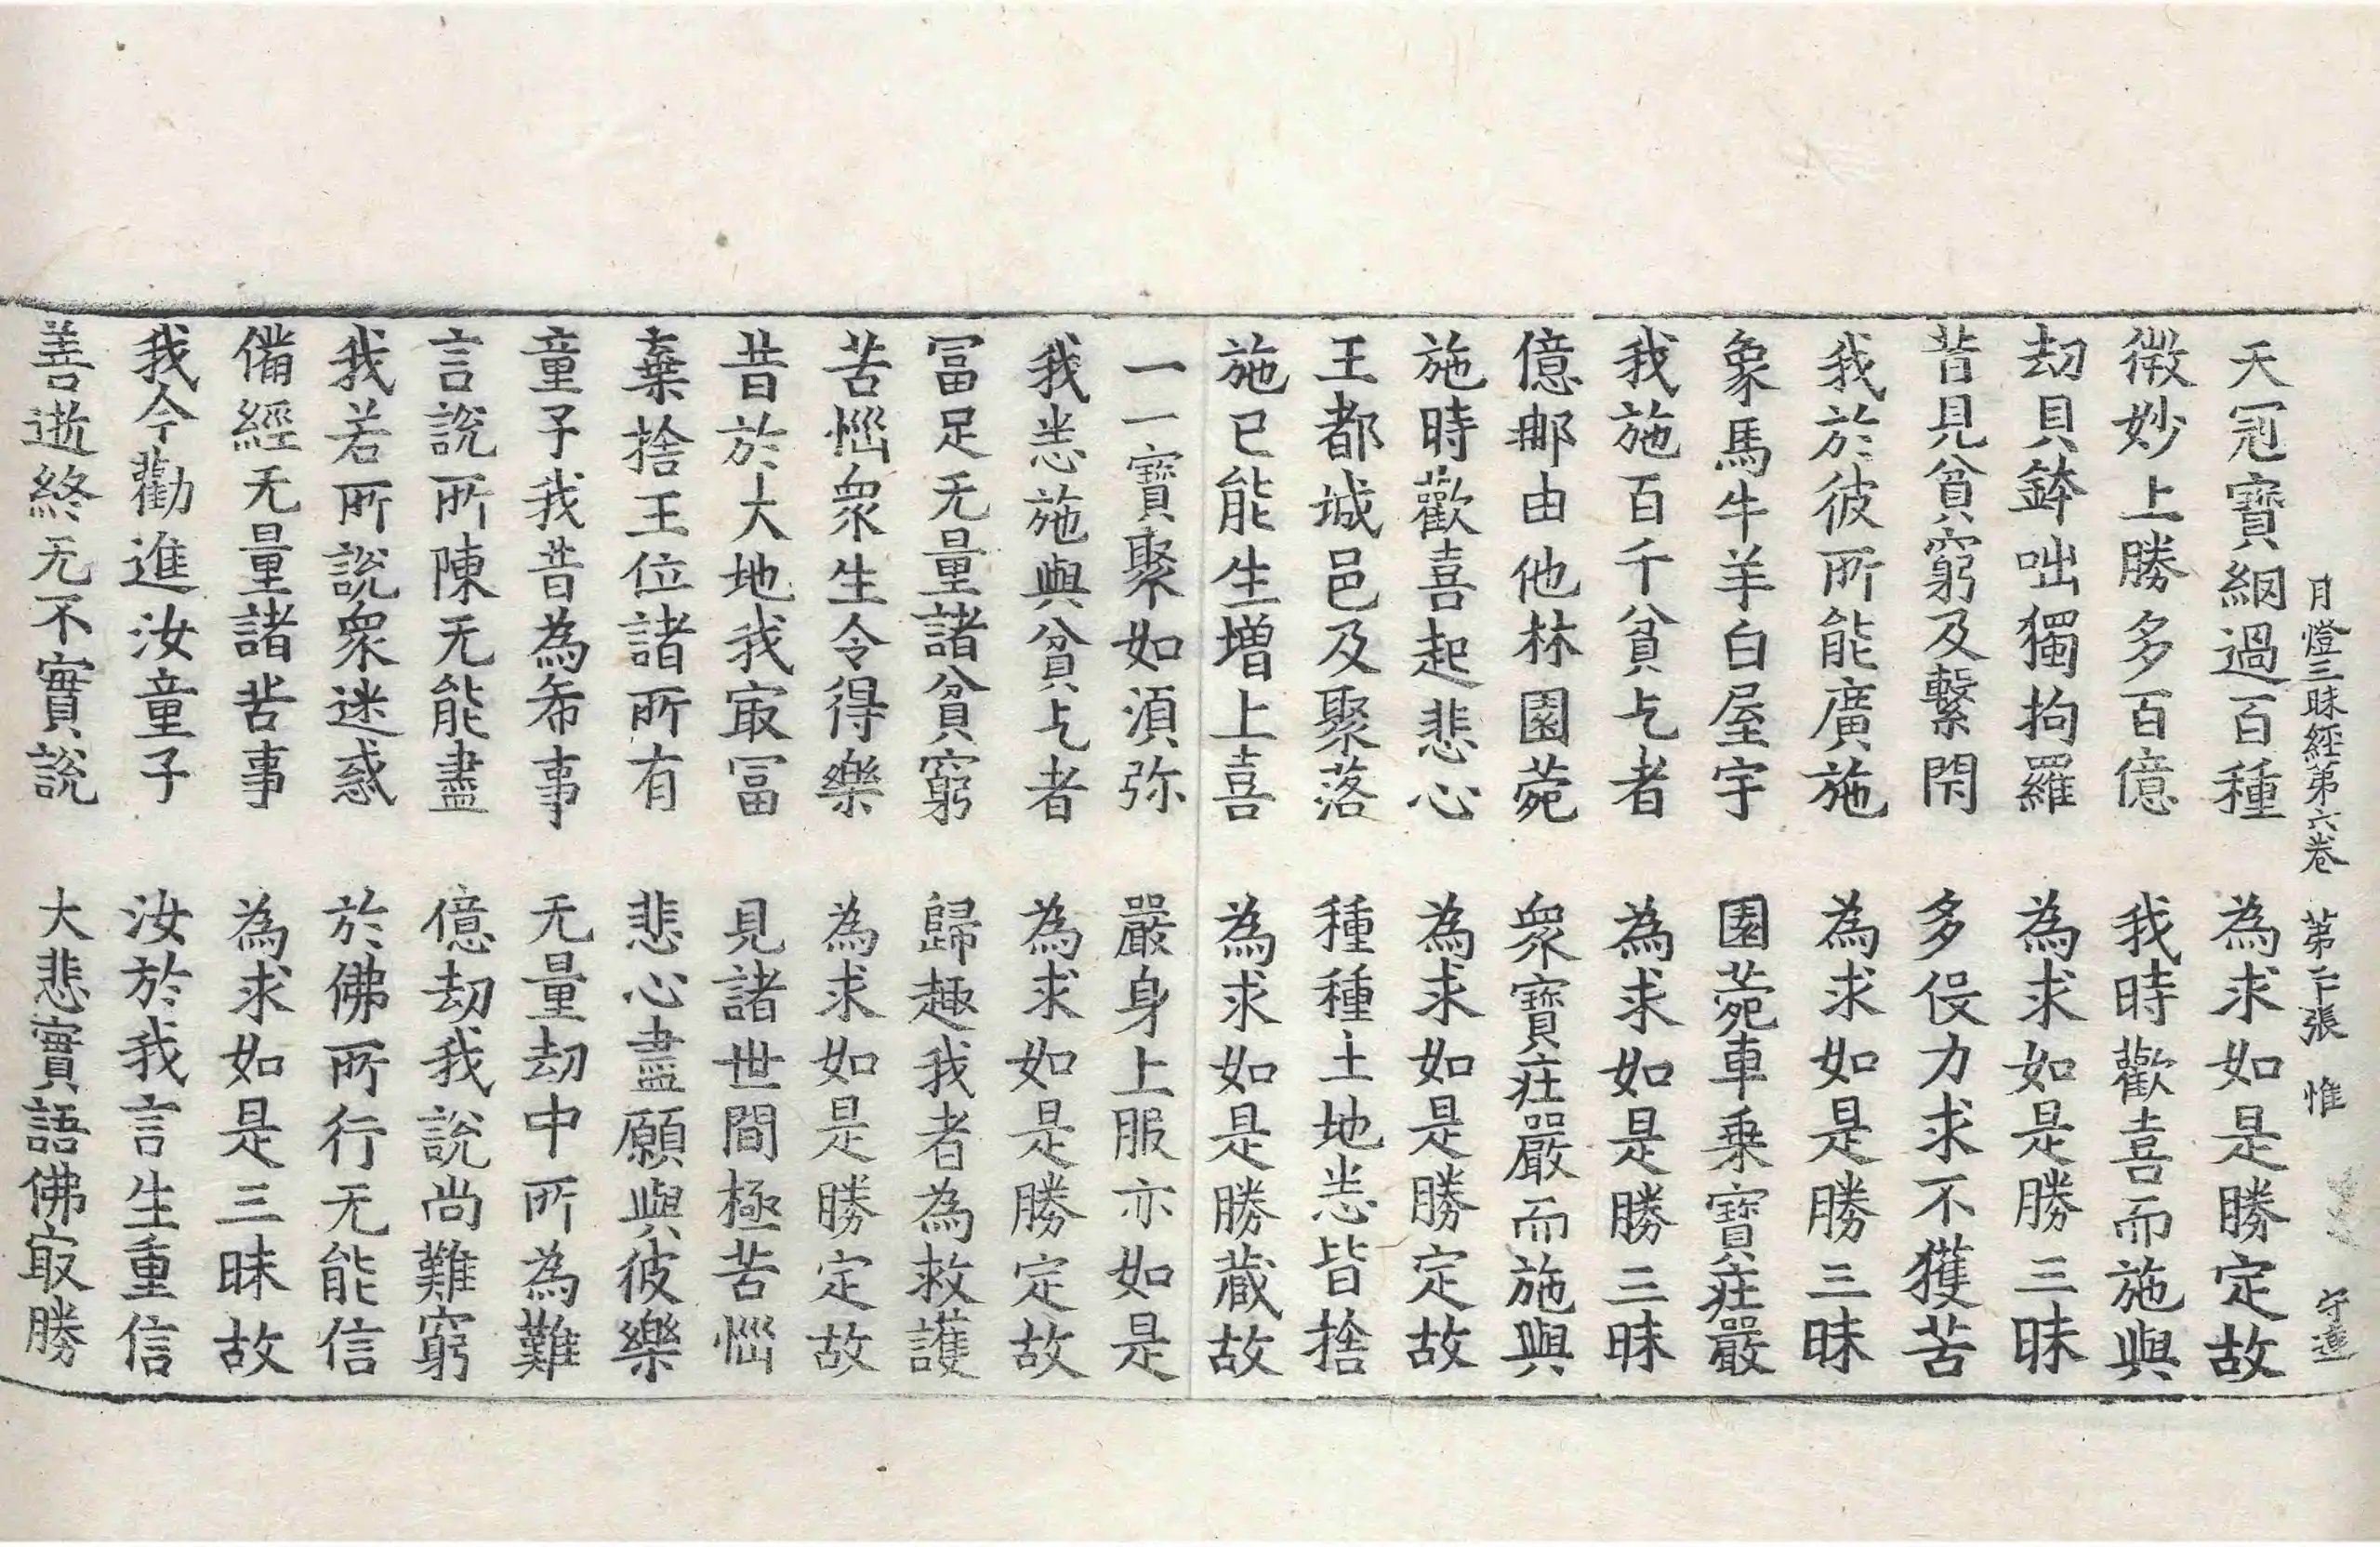 月燈三昧經第六卷　第二十張　惟　守進
天冠寶網過百種　為求如是勝定故
微妙上勝多百億　我時歡喜而施與
劫貝鉢咄獨拘羅　為求如是勝三昧
昔見貧窮及繫閇　多伇力求不獲苦
我於彼所能廣施　為求如是勝三昧
象馬牛羊白屋宇　園菀車乗寶庄嚴
我施百千貧乞者　為求如是勝三昧
億𨙻由他林園菀　衆寶庄嚴而施與
施時歡喜起悲心　為求如是勝定故
王都城邑及聚落　種種土地恙皆捨
施已能生増上喜　為求如是勝蔵故
一一寶聚如湏弥　嚴身上服亦如是
我恙施與貧乞者　為求如是勝定故
冨足无量諸貧窮　歸趣我者為救護
苦惱衆生令得樂　為求如是勝定故
昔於大地我㝡冨　見諸世間極苦惱
棄捨王位諸所有　悲心盡願與彼樂
童子我昔為希事　无量劫中所為難
言說所陳无能盡　億劫我說尚難窮
我若所說衆迷惑　於佛所行无能信
備經无量諸苦事　為求如是三昧故
我今勸進汝童子　汝於我言生重信
善逝終无不實說　大悲實語佛㝡勝